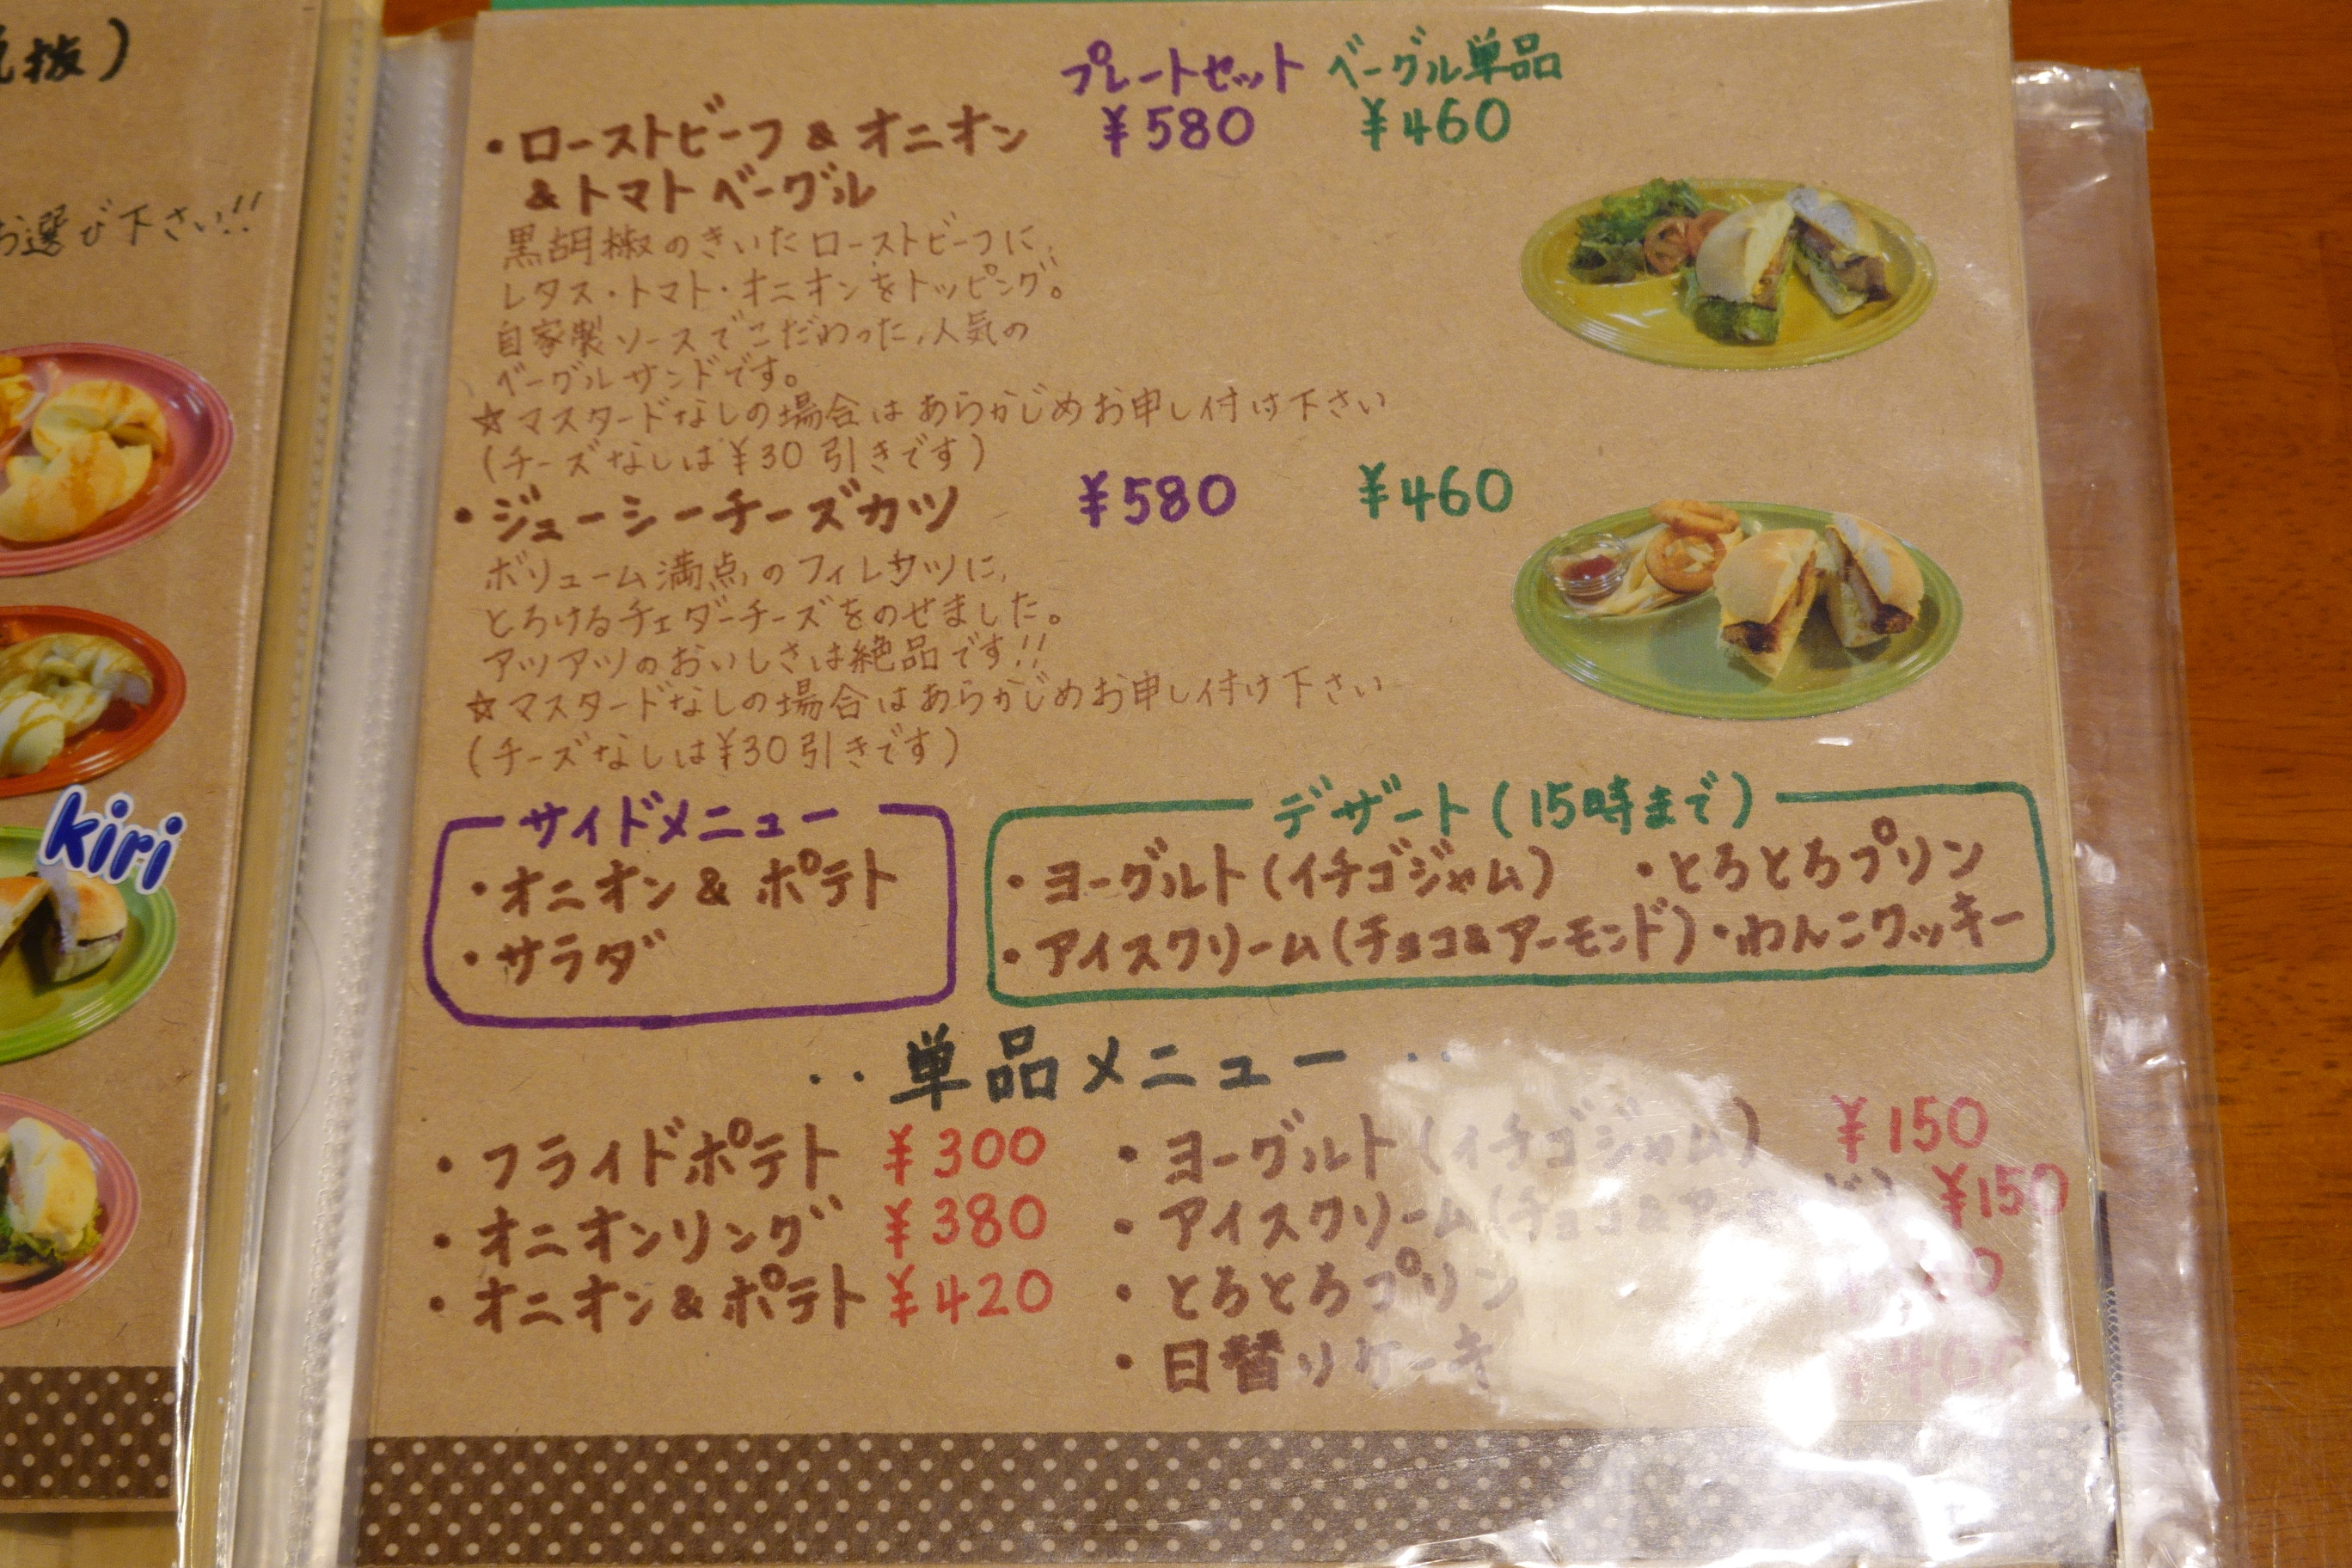 抜)
お選び下さい!!
kiri
プレートセット ベーグル単品
・ローストビーフ & オニオン ¥580 ¥460
& トマトベーグル
黒胡椒のきいたローストビーフに、
レタス・トマト・オニオンをトッピング。
自家製ソースでこだわった、人気の
ベーグルサンドです。
☆マスタードなしの場合はあらかじめお申し付け下さい
(チーズなしは¥30引きです)
・ジューシーチーズカツ ¥580 ¥460
ボリューム満点のフィレカツに、
とろけるチェダーチーズをのせました。
アツアツのおいしさは絶品です!!
☆マスタードなしの場合はあらかじめお申し付け下さい
(チーズなしは¥30引きです)
サイドメニュー
・オニオン & ポテト
・サラダ
デザート(15時まで)
・ヨーグルト(イチゴジャム) ・とろとろプリン
・アイスクリーム(チョコ&アーモンド) ・わんこクッキー
‥単品メニュー‥
・フライドポテト ¥300
・オニオンリング ¥380
・オニオン&ポテト ¥420
・ヨーグルト(イチゴジャム) ¥150
・アイスクリーム(チョコ&アーモンド) ¥150
・とろとろプリン
・日替りケーキ ¥400